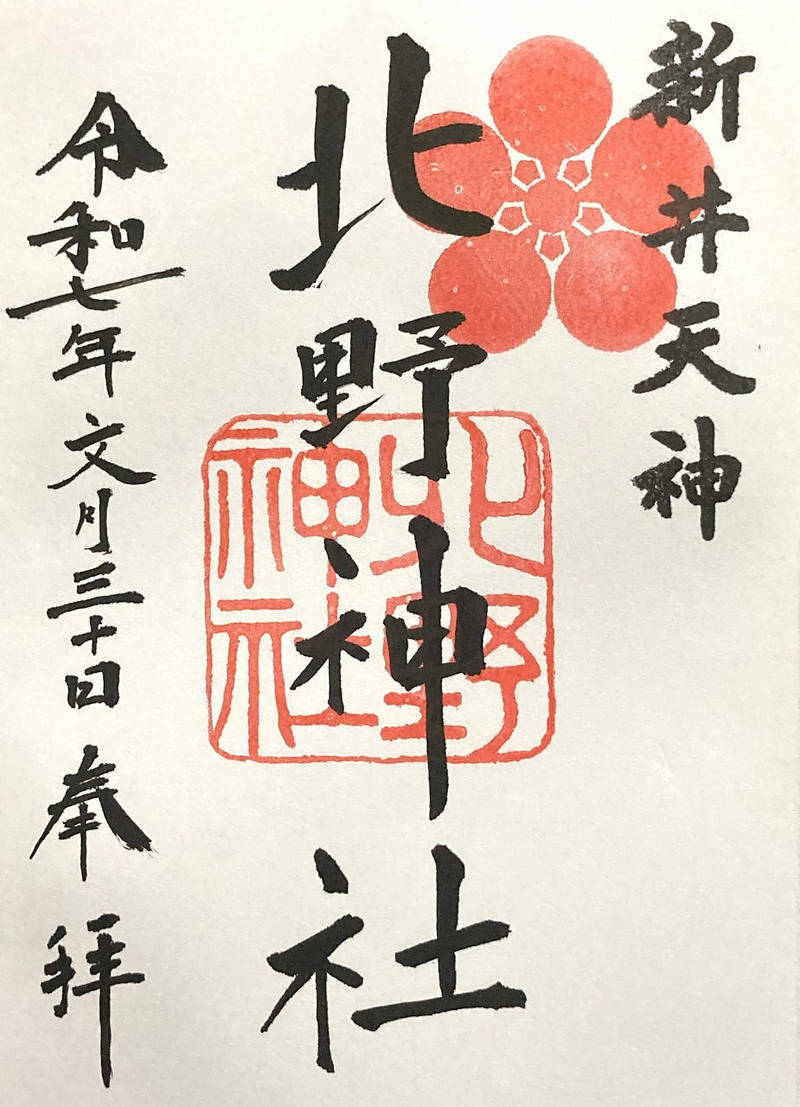 新井天神
北野神社
北野神社
令和七年文月三十日奉拝